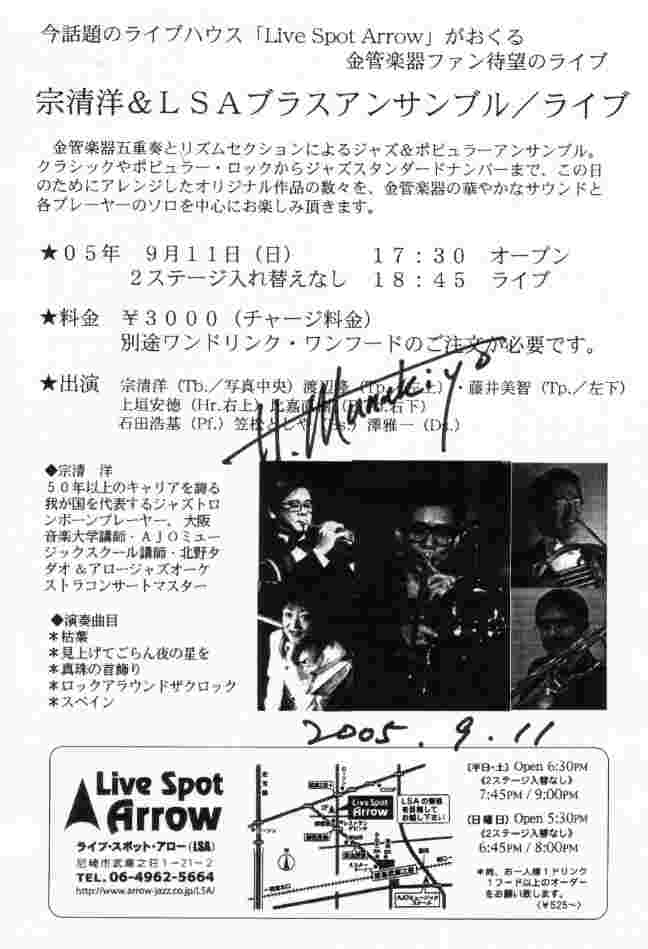 今話題のライブハウス「Live Spot Arrow」がおくる
金管楽器ファン待望のライブ
宗清洋＆ＬＳＡブラスアンサンブル／ライブ
金管楽器五重奏とリズムセクションによるジャズ＆ポピュラーアンサンブル。
クラシックやポピュラー・ロックからジャズスタンダードナンバーまで、この日
のためにアレンジしたオリジナル作品の数々を、金管楽器の華やかなサウンドと
各プレーヤーのソロを中心にお楽しみ頂きます。
★０５年　９月１１日（日）　１７：３０　オープン
２ステージ入れ替えなし　１８：４５　ライブ
★料金　￥３０００（チャージ料金）
別途ワンドリンク・ワンフードのご注文が必要です。
★出演　宗清洋（Tb.／写真中央）渡辺隆（Tp.／左上）・藤井美智（Tp.／左下）
上垣安徳（Hr.右上）比嘉
右下）
石田浩基（Pf.）笠松としや
澤雅一（Ds.）
H. Munekiyo
◆宗清　洋
５０年以上のキャリアを誇る
我が国を代表するジャズトロ
ンボーンプレーヤー、大阪
音楽大学講師・ＡＪＯミュー
ジックスクール講師・北野タ
ダオ＆アロージャズオーケ
ストラコンサートマスター
◆演奏曲目
＊枯葉
＊見上げてごらん夜の星を
＊真珠の首飾り
＊ロックアラウンドザクロック
＊スペイン
2005. 9. 11
Live Spot
Arrow
ライブ・スポット・アロー（LSA）
尼崎市武庫之荘１−２１−２
TEL. 06-4962-5664
http://www.arrow-jazz.co.jp/LSA/
Live Spot
Arrow
LSAの看板
を目指して
お越し下さい
AJOミュージック
スクール
（平日・土）Open 6:30PM
《2ステージ入替なし》
7:45PM / 9:00PM
（日曜日）Open 5:30PM
《2ステージ入替なし》
6:45PM / 8:00PM
＊尚、お一人様１ドリンク
１フード以上のオーダー
をお願い致します。
（￥525〜）